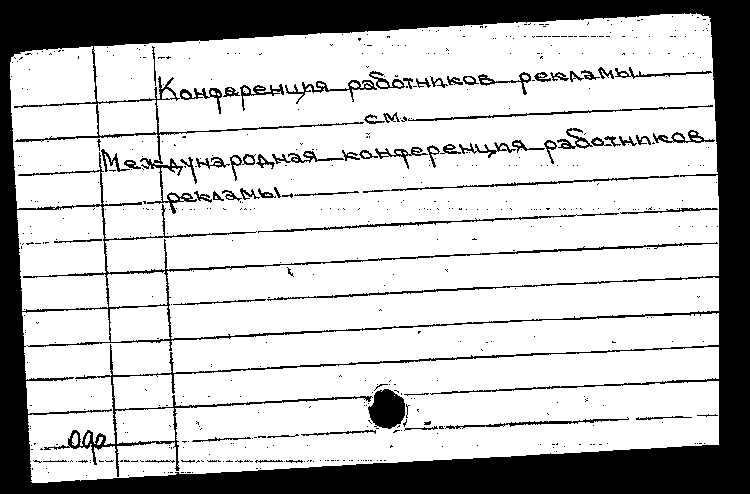 Конференция работников рекламы
см.
Международная конференция работников
рекламы.